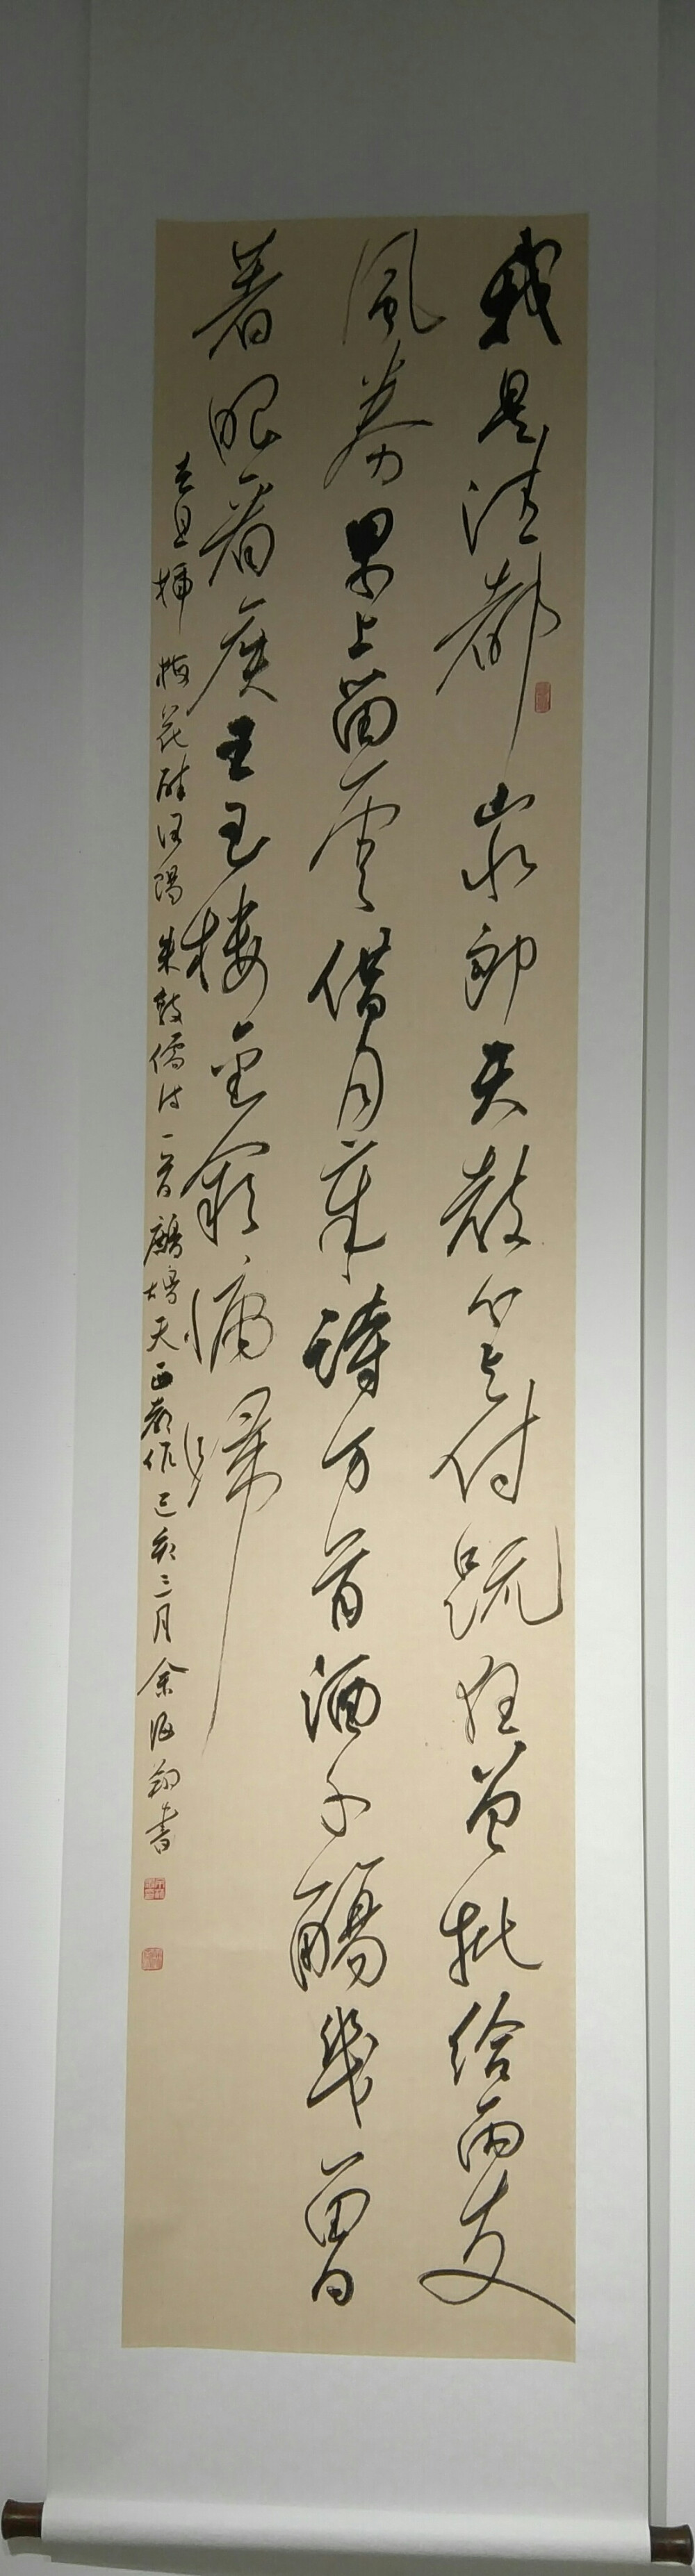 我是清都山水郎天教分付與疏狂曾批給雨支
風券累上留雲借月章詩萬首酒千觴幾曾
著眼看侯王玉樓金闕慵歸
去且插梅花醉洛陽朱敦儒詩一首鷓鴣天西都作己亥三月余海翔書